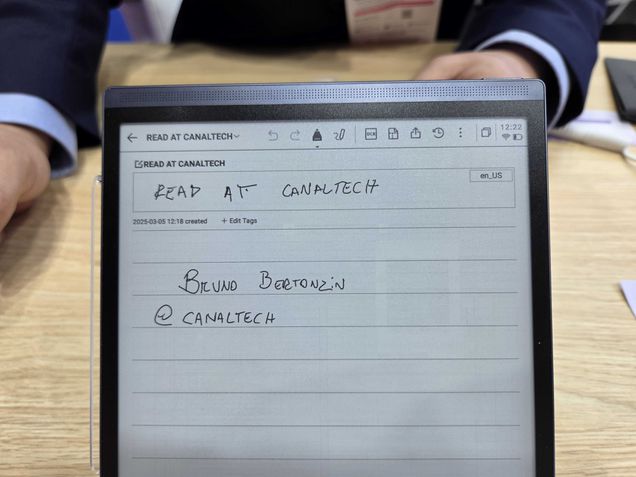 READ AT CANALTECH
12:22
READ AT CANALTECH
en_US
READ AT CANALTECH
2025-03-05 12:18 created + Edit Tags
BRUNO BERTONZIN
@ CANALTECH